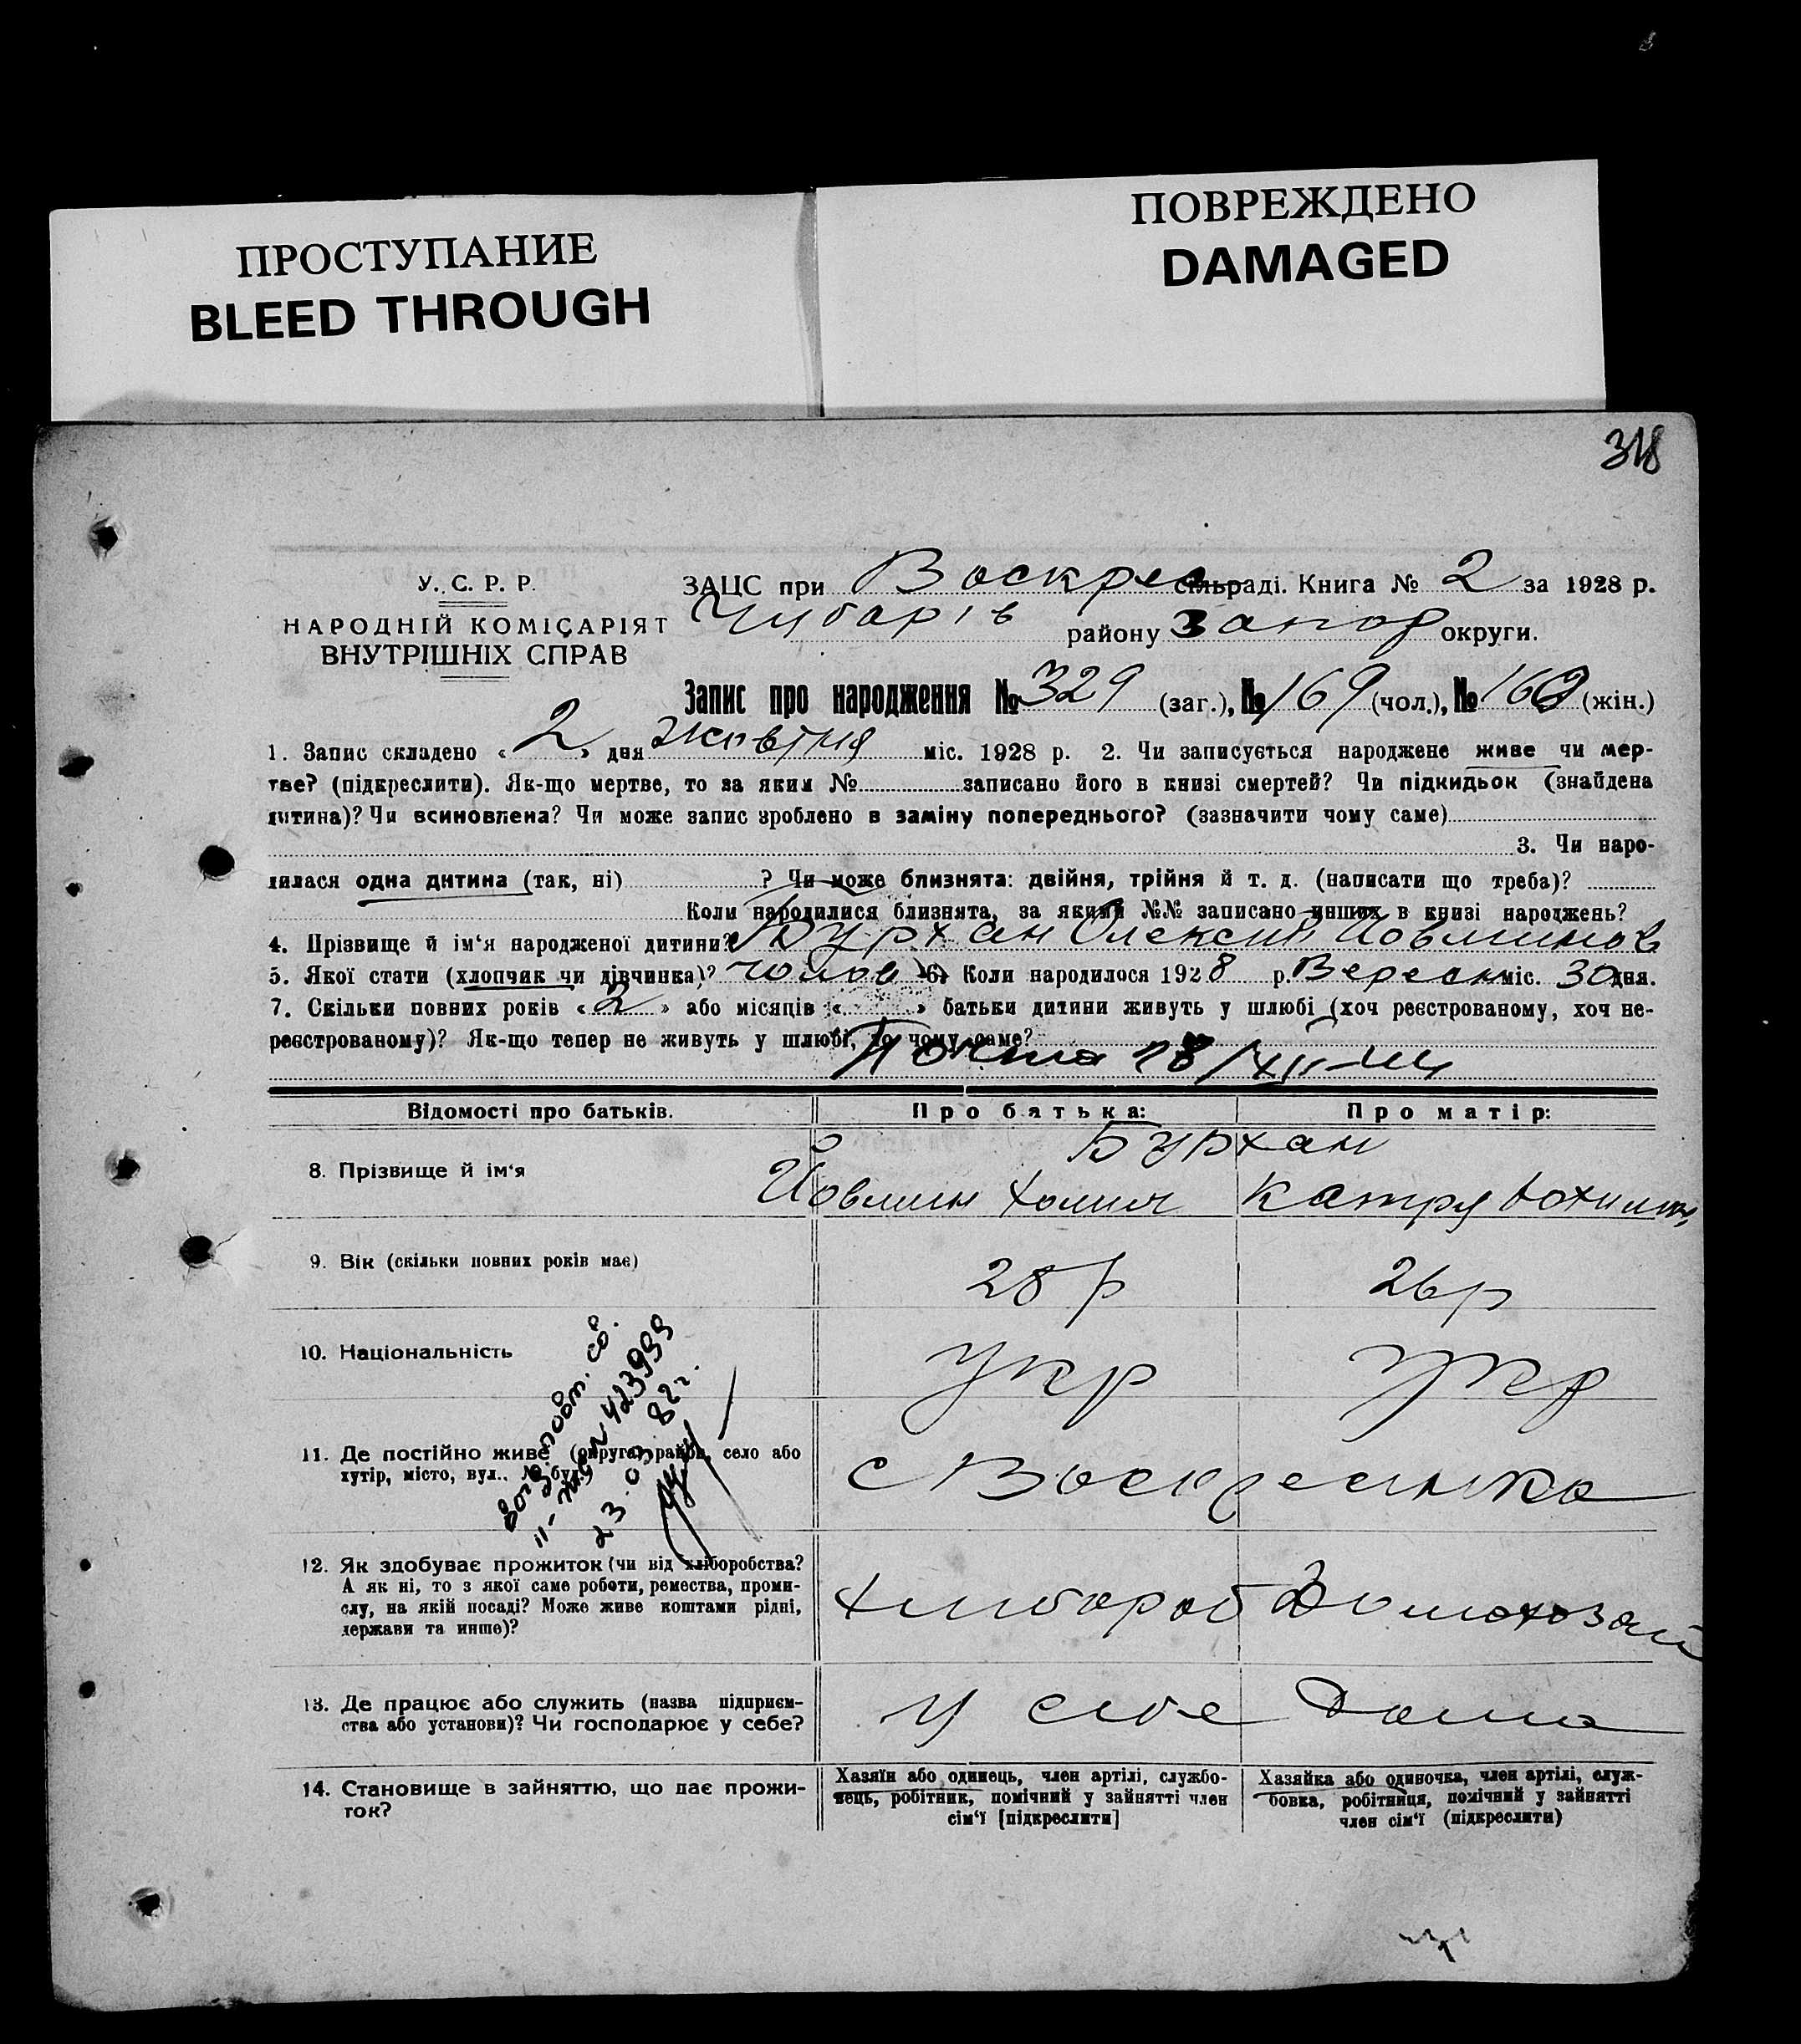 ПРОСТУПАНИЕ
BLEED THROUGH
ПОВРЕЖДЕНО
DAMAGED
318
У. С. Р. Р.
НАРОДНІЙ КОМІСАРІЯТ
ВНУТРІШНІХ СПРАВ
ЗАЦС при Воскрес сільраді. Книга № 2 за 1928 р.
Чубарів району Запор округи.
Запис про народження № 329 (заг.), № 169 (чол.), № 160 (жін.)
1. Запис складено « 2 » дня жовтня міс. 1928 р. 2. Чи записується народжене живе чи мер-
тве? (підкреслити). Як-що мертве, то за яким № записано його в книзі смертей? Чи підкидьок (знайдена
дитина)? Чи всиновлена? Чи може запис зроблено в заміну попереднього? (зазначити чому саме)
3. Чи наро-
дилася одна дитина (так, ні) ? Чи може близнята: двійня, трійня й т. д. (написати що треба)?
Коли народилися близнята, за якими №№ записано инших в книзі народжень?
4. Прізвище й ім'я народженої дитини? Бурхан Олексий Йовлминов
5. Якої стати (хлопчик чи дівчинка)? чолов 6. Коли народилося 1928 р. Вересн міс. 30 дня.
7. Скільки повних років « 2 » або місяців « » батьки дитини живуть у шлюбі (хоч реєстрованому, хоч не-
реєстрованому)? Як-що тепер не живуть у шлюбі, то чому саме?
18/XII
Відомості про батьків.
Про батька:
Про матір:
8. Прізвище й ім'я
Бурхан
Катря
9. Вік (скільки повних років має)
28 р
26 р
10. Національність
Укр
Укр
повт. св.
№ 423999
23.03.82 г.
11. Де постійно живе (округа, район, село або
хутір, місто, вул., № буд.)
с Воскресинка
12. Як здобуває прожиток (чи від хліборобства?
А як ні, то з якої саме роботи, ремества, проми-
слу, на якій посаді? Може живе коштами рідні,
держави та инше)?
Хлибороб
Домохозяй
13. Де працює або служить (назва підприєм-
ства або установи)? Чи господарює у себе?
У себе Дома
14. Становище в зайняттю, що дає прожи-
ток?
Хазяїн або одинець, член артілі, службо-
вець, робітник, помічний у зайнятті член
сім'ї [підкреслити]
Хазяйка або одиночка, член артілі, служ-
бовка, робітниця, помічний у зайнятті
член сім'ї (підкреслити)